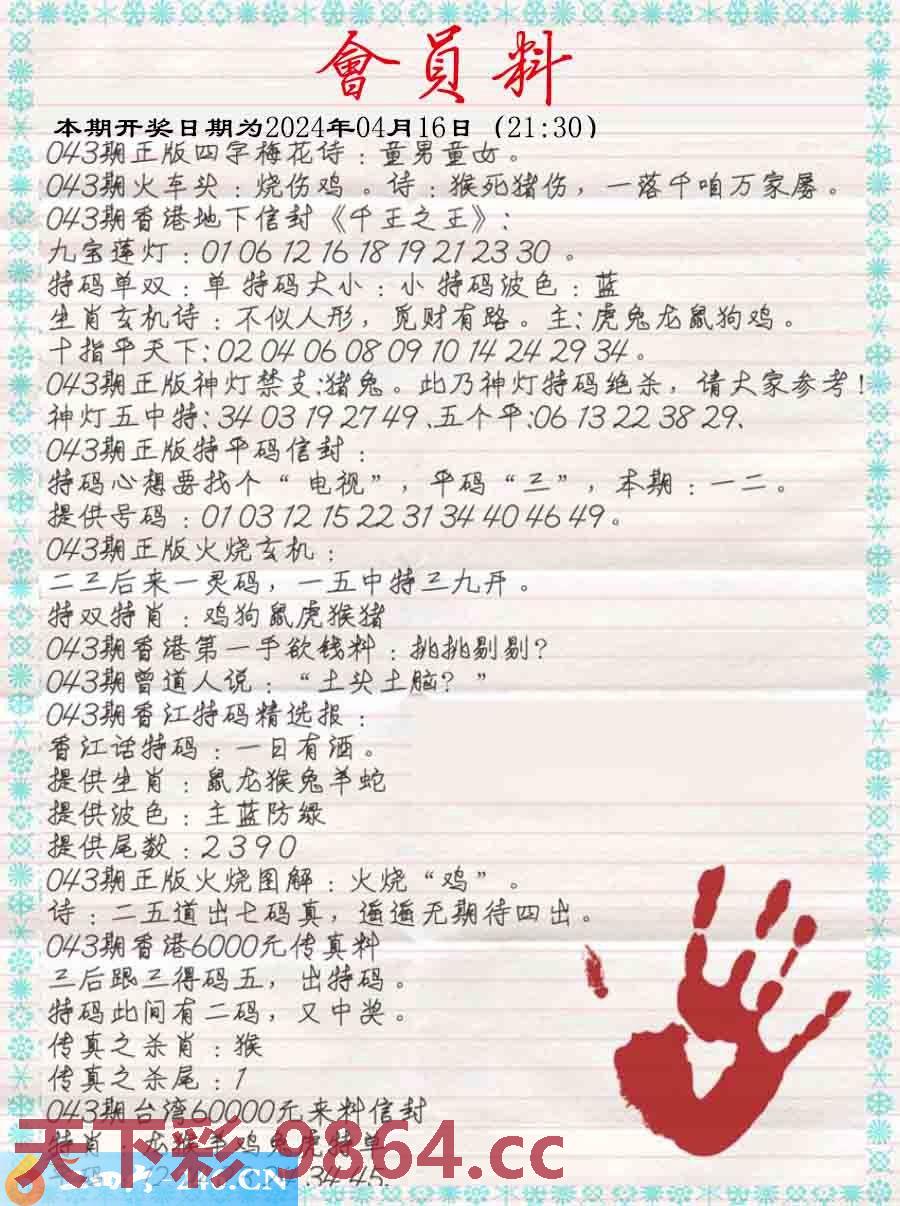 會員料
本期开奖日期为2024年04月16日（21:30）
043期正版四字梅花诗：童男童女。
043期火车头：烧伤鸡 。诗：猴死猪伤，一落千咱万家屡。
043期香港地下信封《千王之王》：
九宝莲灯：01 06 12 16 18 19 21 23 30 。
特码单双：单 特码大小：小 特码波色：蓝
生肖玄机诗：不似人形，觅财有路。主：虎兔龙鼠狗鸡。
十指平天下：02 04 06 08 09 10 14 24 29 34 。
043期正版神灯禁支：猪兔。此乃神灯特码绝杀，请大家参考！
神灯五中特：34 03 19 27 49 、五个平：06 13 22 38 29、
043期正版特平码信封：
特码心想要找个“ 电视”，平码“三”，本期：一二。
提供号码：01 03 12 15 22 31 34 40 46 49 。
043期正版火烧玄机：
二三后来一灵码，一五中特三九开。
特双特肖：鸡狗鼠虎猴猪
043期香港第一手欲钱料：挑挑剔剔?
043期曾道人说：“土头土脑? ”
043期香江特码精选报：
香江话特码：一日有酒。
提供生肖：鼠龙猴兔羊蛇
提供波色：主蓝防绿
提供尾数：2 3 9 0
043期正版火烧图解：火烧“鸡” 。
诗：二五道出七码真，遥遥无期待四出。
043期香港6000元传真料
三后跟三得码五，出特码。
特码此间有二码，又中奖。
传真之杀肖：猴
传真之杀尾：1
043期台湾60000元来料信封
特肖：龙猴羊鸡兔虎特单
34 45.
天下彩-9864.cc
246.CN